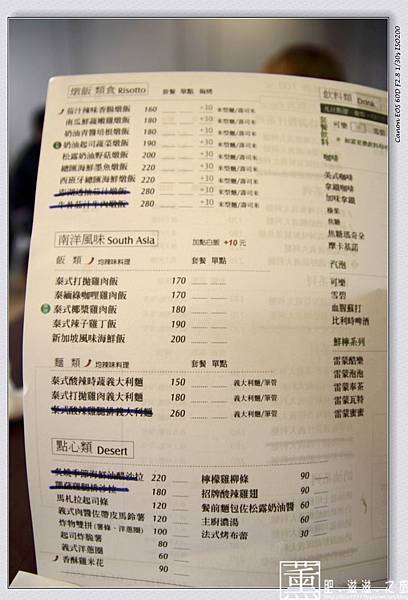 Canon EOS 60D F2.8 1/30s ISO200
燉飯 類食 Risotto 套餐 單點 焗烤
茄汁辣味香腸燉飯 160 +30 米型麵/壽司米
南瓜鮮蔬嫩雞燉飯 180 +30 米型麵/壽司米
奶油青醬培根燉飯 180 +30 米型麵/壽司米
奶油起司蔬菜燉飯 190 +30 米型麵/壽司米
松露奶油野菇燉飯 200 +30 米型麵/壽司米
總匯海鮮墨魚燉飯 220 +30 米型麵/壽司米
西班牙總匯海鮮燉飯 220 +30 米型麵/壽司米
燉飯 280 +30 米型麵/壽司米
茄汁牛肉燉飯 280 +30 米型麵/壽司米
南洋風味 South Asia 加點白飯 +10 元
飯 類 均辣味料理 套餐 單點
泰式打拋雞肉飯 170
泰緬綠咖哩雞肉飯 180
泰式椰漿雞肉飯 180
泰式辣子雞丁飯 190
新加坡風味海鮮飯 200
麵 類 均辣味料理 套餐 單點
泰式酸辣時蔬義大利麵 150 義大利麵/筆管
泰式打拋雞肉義大利麵 180 義大利麵/筆管
泰式酸辣雞腿排義大利麵 260 義大利麵/筆管
點心類 Desert
海鮮油醋沙拉 220
沙拉 180
馬札拉起司條 120
義式肉醬佐帶皮馬鈴薯 120
炸物雙拼(薯條、洋蔥圈) 100
起司炸脆薯 80
義式洋蔥圈 60
香酥雞米花 90
檸檬雞柳條 90
招牌酸辣雞翅 90
餐前麵包佐松露奶油醬 60
主廚濃湯 60
法式烤布蕾 30
飲料類 Drink
可樂
咖啡
美式咖啡
拿鐵咖啡
加味拿鐵
榛果
焦糖
焦糖瑪奇朵
摩卡基諾
汽泡
可樂
雪碧
血腥蘇打
比利時啤酒
鮮檸系列
雷蒙酷樂
雷蒙泡泡
雷蒙泰茶
雷蒙瓦特
雷蒙蜜蜜
薰 肥.滋滋.之旅